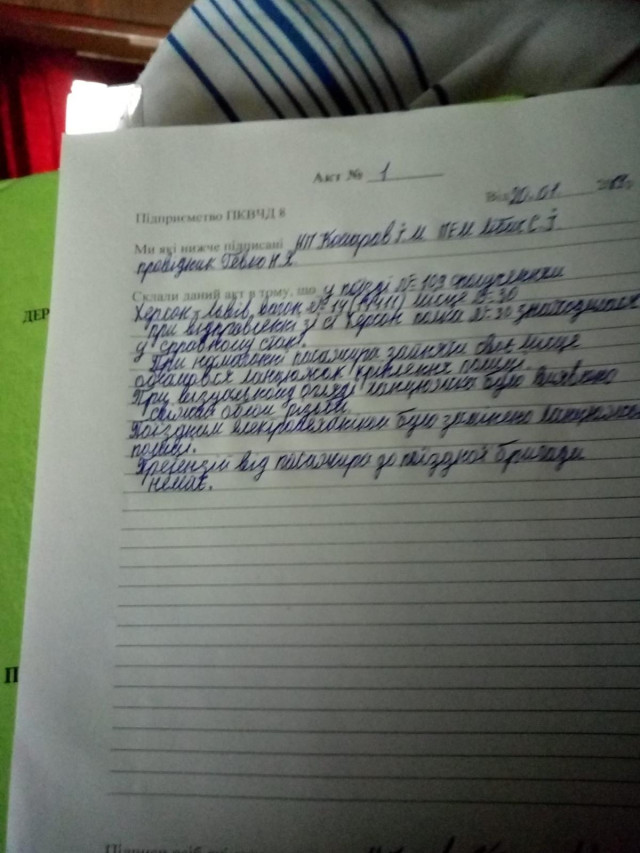 Акт № 1
Від 20.01
Підприємство ПКВЧД 8
Ми які нижче підписані НП Комаров І. М ПЕМ С. І
провідник Н. Х.
Склали даний акт в тому, що у поїзді № 109 сполученням
Херсон - Львів, вагон № 14 місце № 30
при відправленні зі ст Херсон полка № 30 знаходилася
у справному стані.
При намаганні пасажира зайняти своє місце
обламався ланцюжок кріплення полиці.
При візуальному огляді ланцюжка було виявлено
облом різьби.
Поїздним електромеханіком було замінено ланцюжок
полиці.
Претензій від пасажира до поїздної бригади
немає.
ДЕР
П